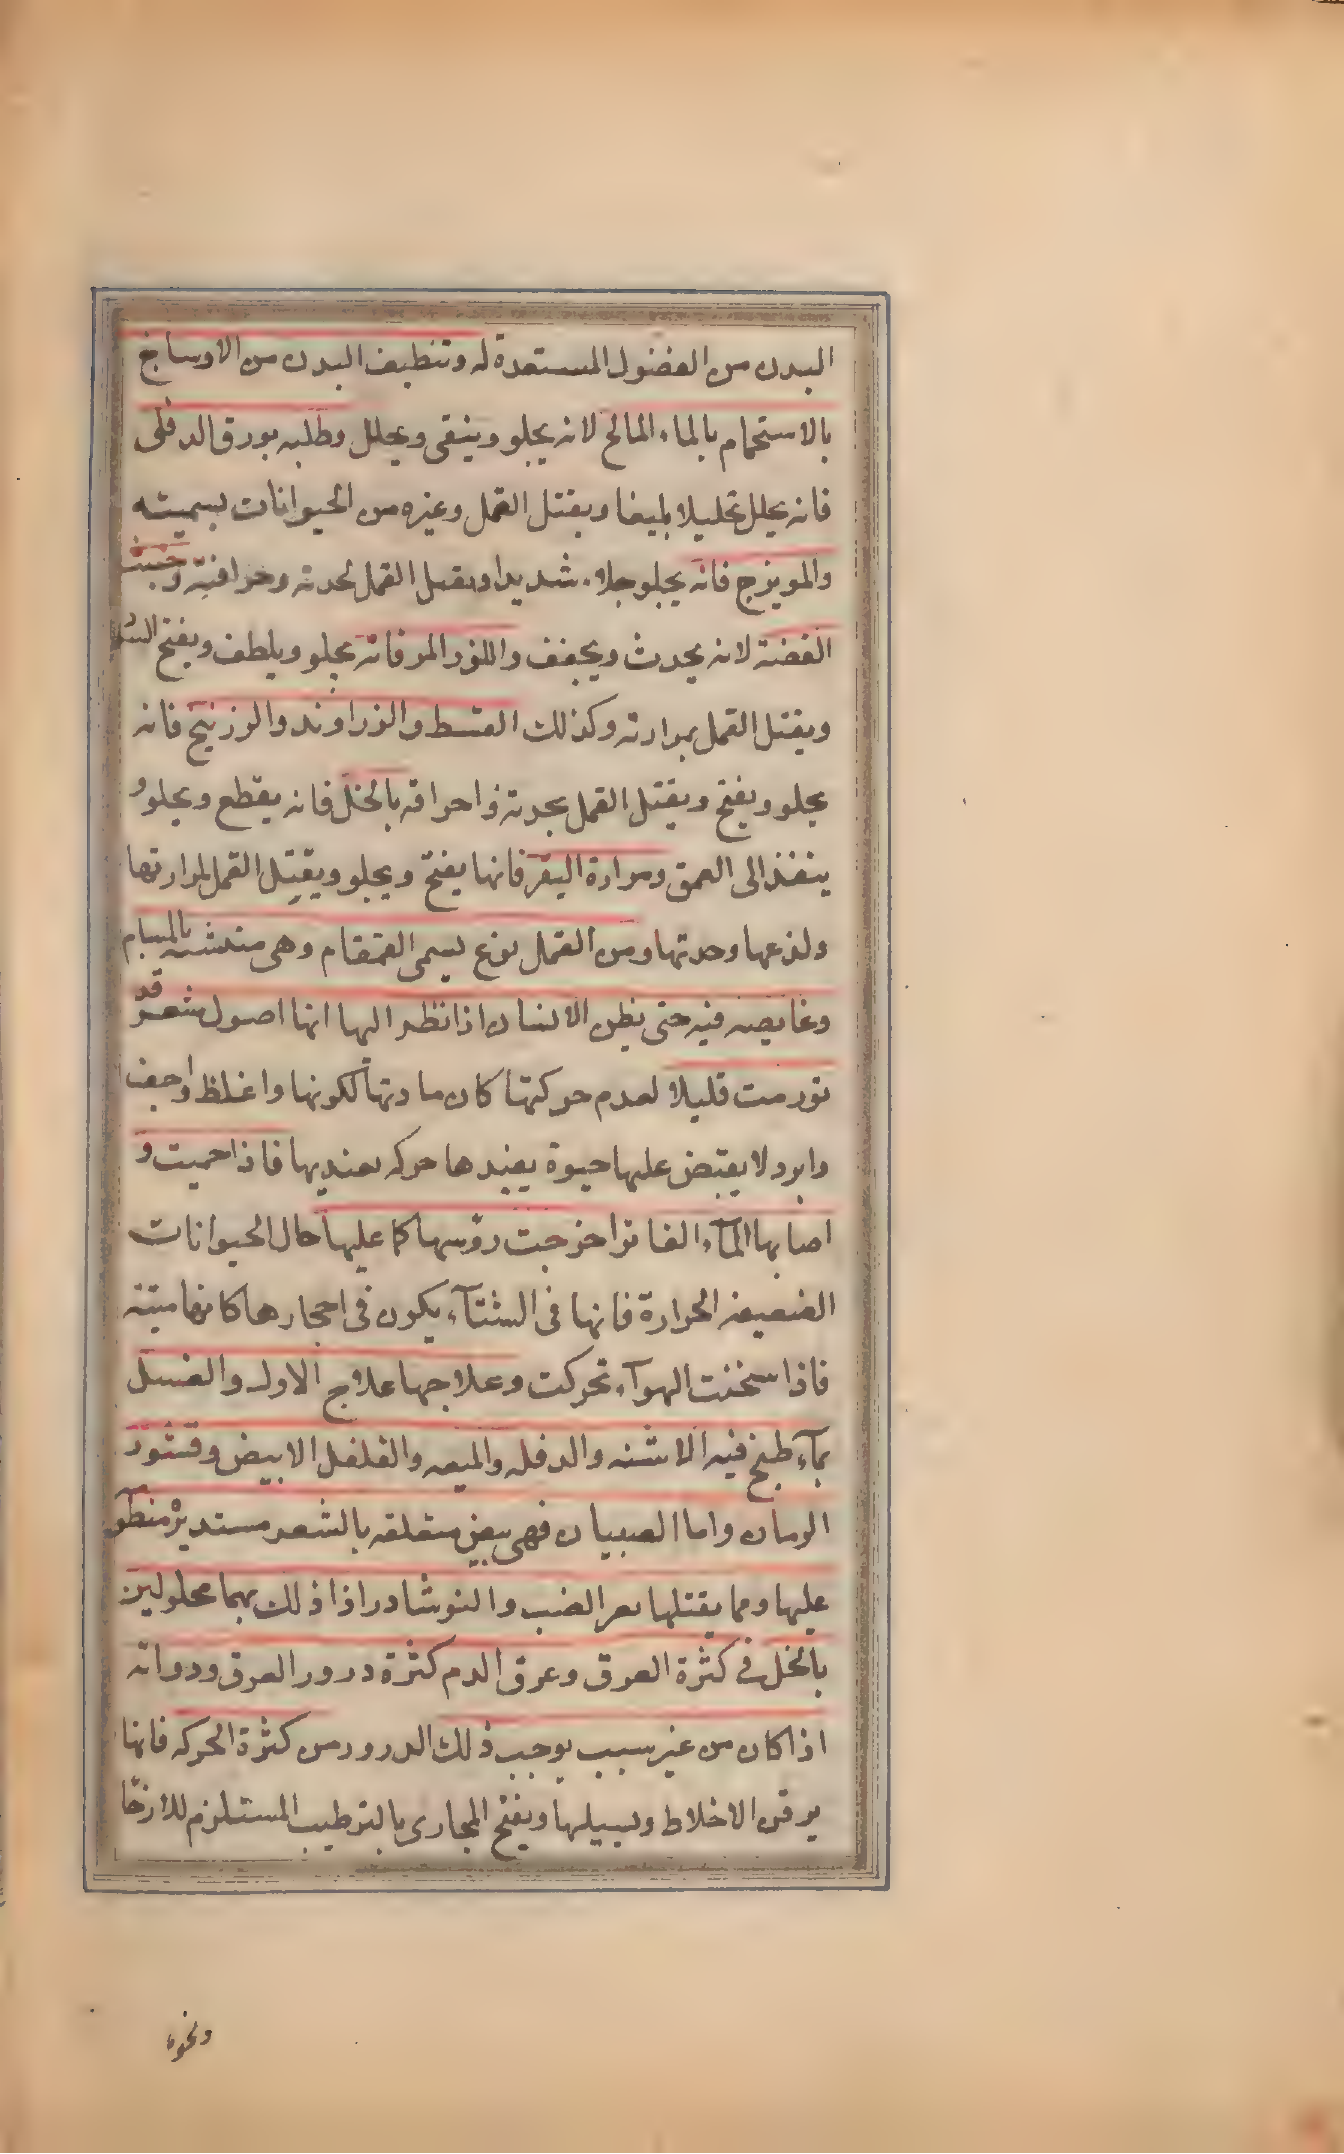 البدن من الفضول المستعدة له وتنظيف البدن من الاوساخ
بالاستحمام بالماء المالح لانه يجلو وينقى ويحلل وطليه بورق الدفلى
فانه يحلل تحليلا بليغا ويقتل القمل وغيره من الحيوانات بسميته
والمويزج فانه يجلو جلاء شديدا ويقتل القمل لحدته وحرافته وخبث
الفضة لانه يحدث ويجفف واللوز المر فانه يجلو ويلطف ويفتح
ويقتل القمل بمرارته وكذلك القسط والزراوند والزرنيخ فانه
يجلو ويفتح ويقتل القمل بحدته واحراقه بالخل فانه يقطع ويجلو و
ينفذ الى العمق ومرارة البقر فانها يفتح ويجلو ويقتل القمل لمرارتها
ولذعها وحدتها ومن القمل نوع يسمى القمقام وهى متشبثه بالمسام
وغايصه فيه حتى يظن الانسان اذا نظر اليها انها اصول شعر قد
تورمت قليلا لعدم حركتها كان مادتها لكونها واغلظ واجف
وابرد لا يقبض عليها حيوة يفيدها حركه يعتد بها فاذا حميت و
اصابها المآء الفاتر اخرجت رؤسها كما عليها حال الحيوانات
الضعيفه الحرارة فانها فى الشتآء يكون فى احجارها كانها ميتة
فاذا سخنت الهوآء تحركت وعلاجها علاج الاول والغسل
بمآء طبخ فيه الاشنه والدفله والميعه والفلفل الابيض وقشور
الرمان واما الصيبان فهى بيض متعلقه بالشعر مستدير
عليها ومما يقتلها بعر الضب والنوشادر اذا ذلك بهما محلولين
بالخل فى كثرة العرق وعرق الدم كثرة درور العرق ودواته
اذا كان من غير سبب يوجب ذلك الدرور من كثرة الحركه فانها
يرقق الاخلاط ويسيلها ويفتح المجارى بالترطيب المستلزم للارخا
ونحوه